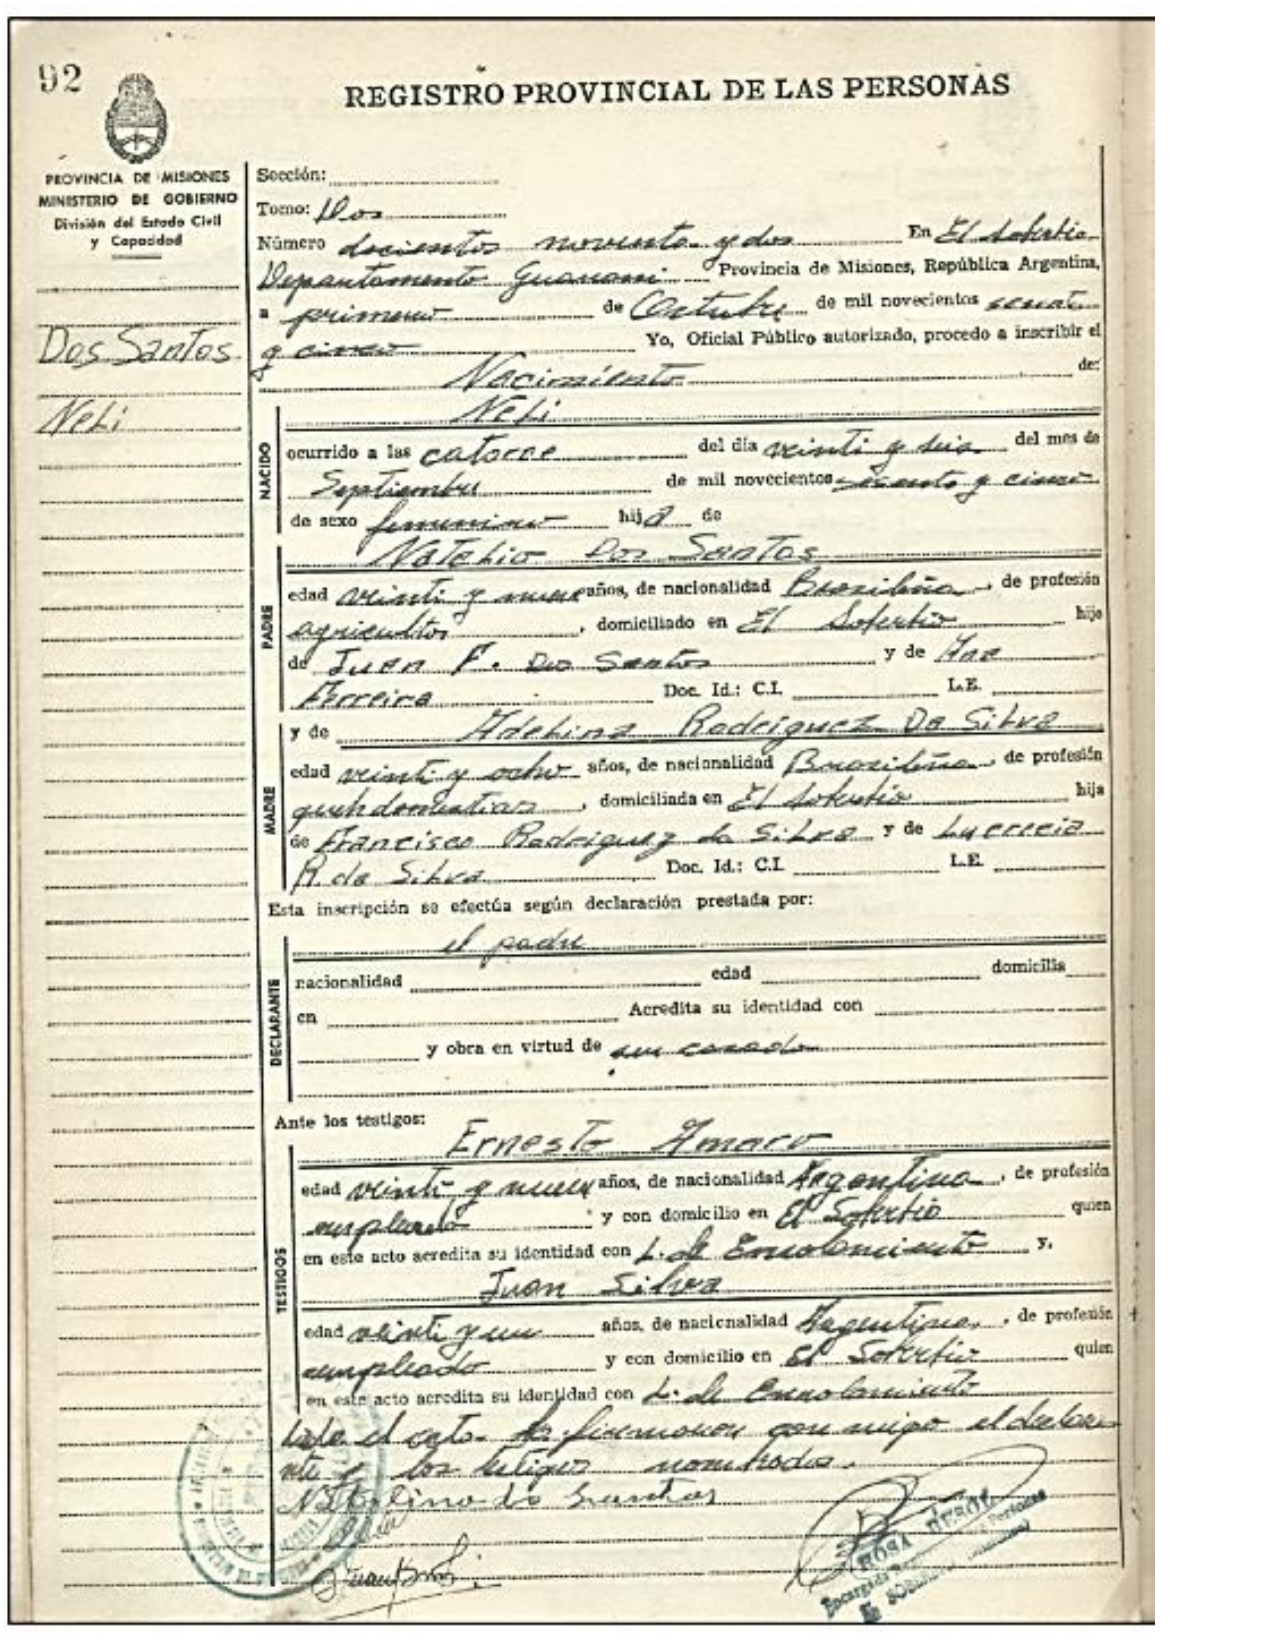 92
REGISTRO PROVINCIAL DE LAS PERSONAS
PROVINCIA DE MISIONES
MINISTERIO DE GOBIERNO
División del Estado Civil
y Capacidad
Dos Santos
Neli
Sección:
Tomo: Dos
Número docientos noventa y dos En El Soberbio
Departamento Guaraní Provincia de Misiones, República Argentina,
a primero de Octubre de mil novecientos sesenta
y cinco Yo, Oficial Público autorizado, procedo a inscribir el
Nacimiento de:
NACIDO
Neli
ocurrido a las catorce del día veinti y seis del mes de
Septiembre de mil novecientos sesenta y cinco
de sexo femenino hija de
PADRE
Dos Santos
edad veinti y nueve años, de nacionalidad Brasileña, de profesión
agricultor, domiciliado en El Soberbio hijo
de Juan F. Dos Santos y de Ana
Ferreira Doc. Id.: C.I. L.E.
MADRE
y de Adelina Rodriguez Da Silva
edad veinti y ocho años, de nacionalidad Brasileña, de profesión
domiciliada en El Soberbio hija
de Francisco Rodriguez da Silva y de Lucrecia
R. da Silva Doc. Id.: C.I. L.E.
Esta inscripción se efectúa según declaración prestada por:
DECLARANTE
el padre
nacionalidad edad domicilia
en Acredita su identidad con
y obra en virtud de ser casado
Ante los testigos:
TESTIGOS
Ernesto Amaro
edad veinti y nueve años, de nacionalidad Argentina, de profesión
empleado y con domicilio en El Soberbio quien
en este acto acredita su identidad con L. de Enrolamiento y,
Juan Silva
edad veinti y un años, de nacionalidad Argentina, de profesión
empleado y con domicilio en El Soberbio quien
en este acto acredita su identidad con L. de Enrolamiento
el acta firmaron conmigo el declara
nte y los testigos nombrados.
Natalino do Santos
ROSA
Encargada